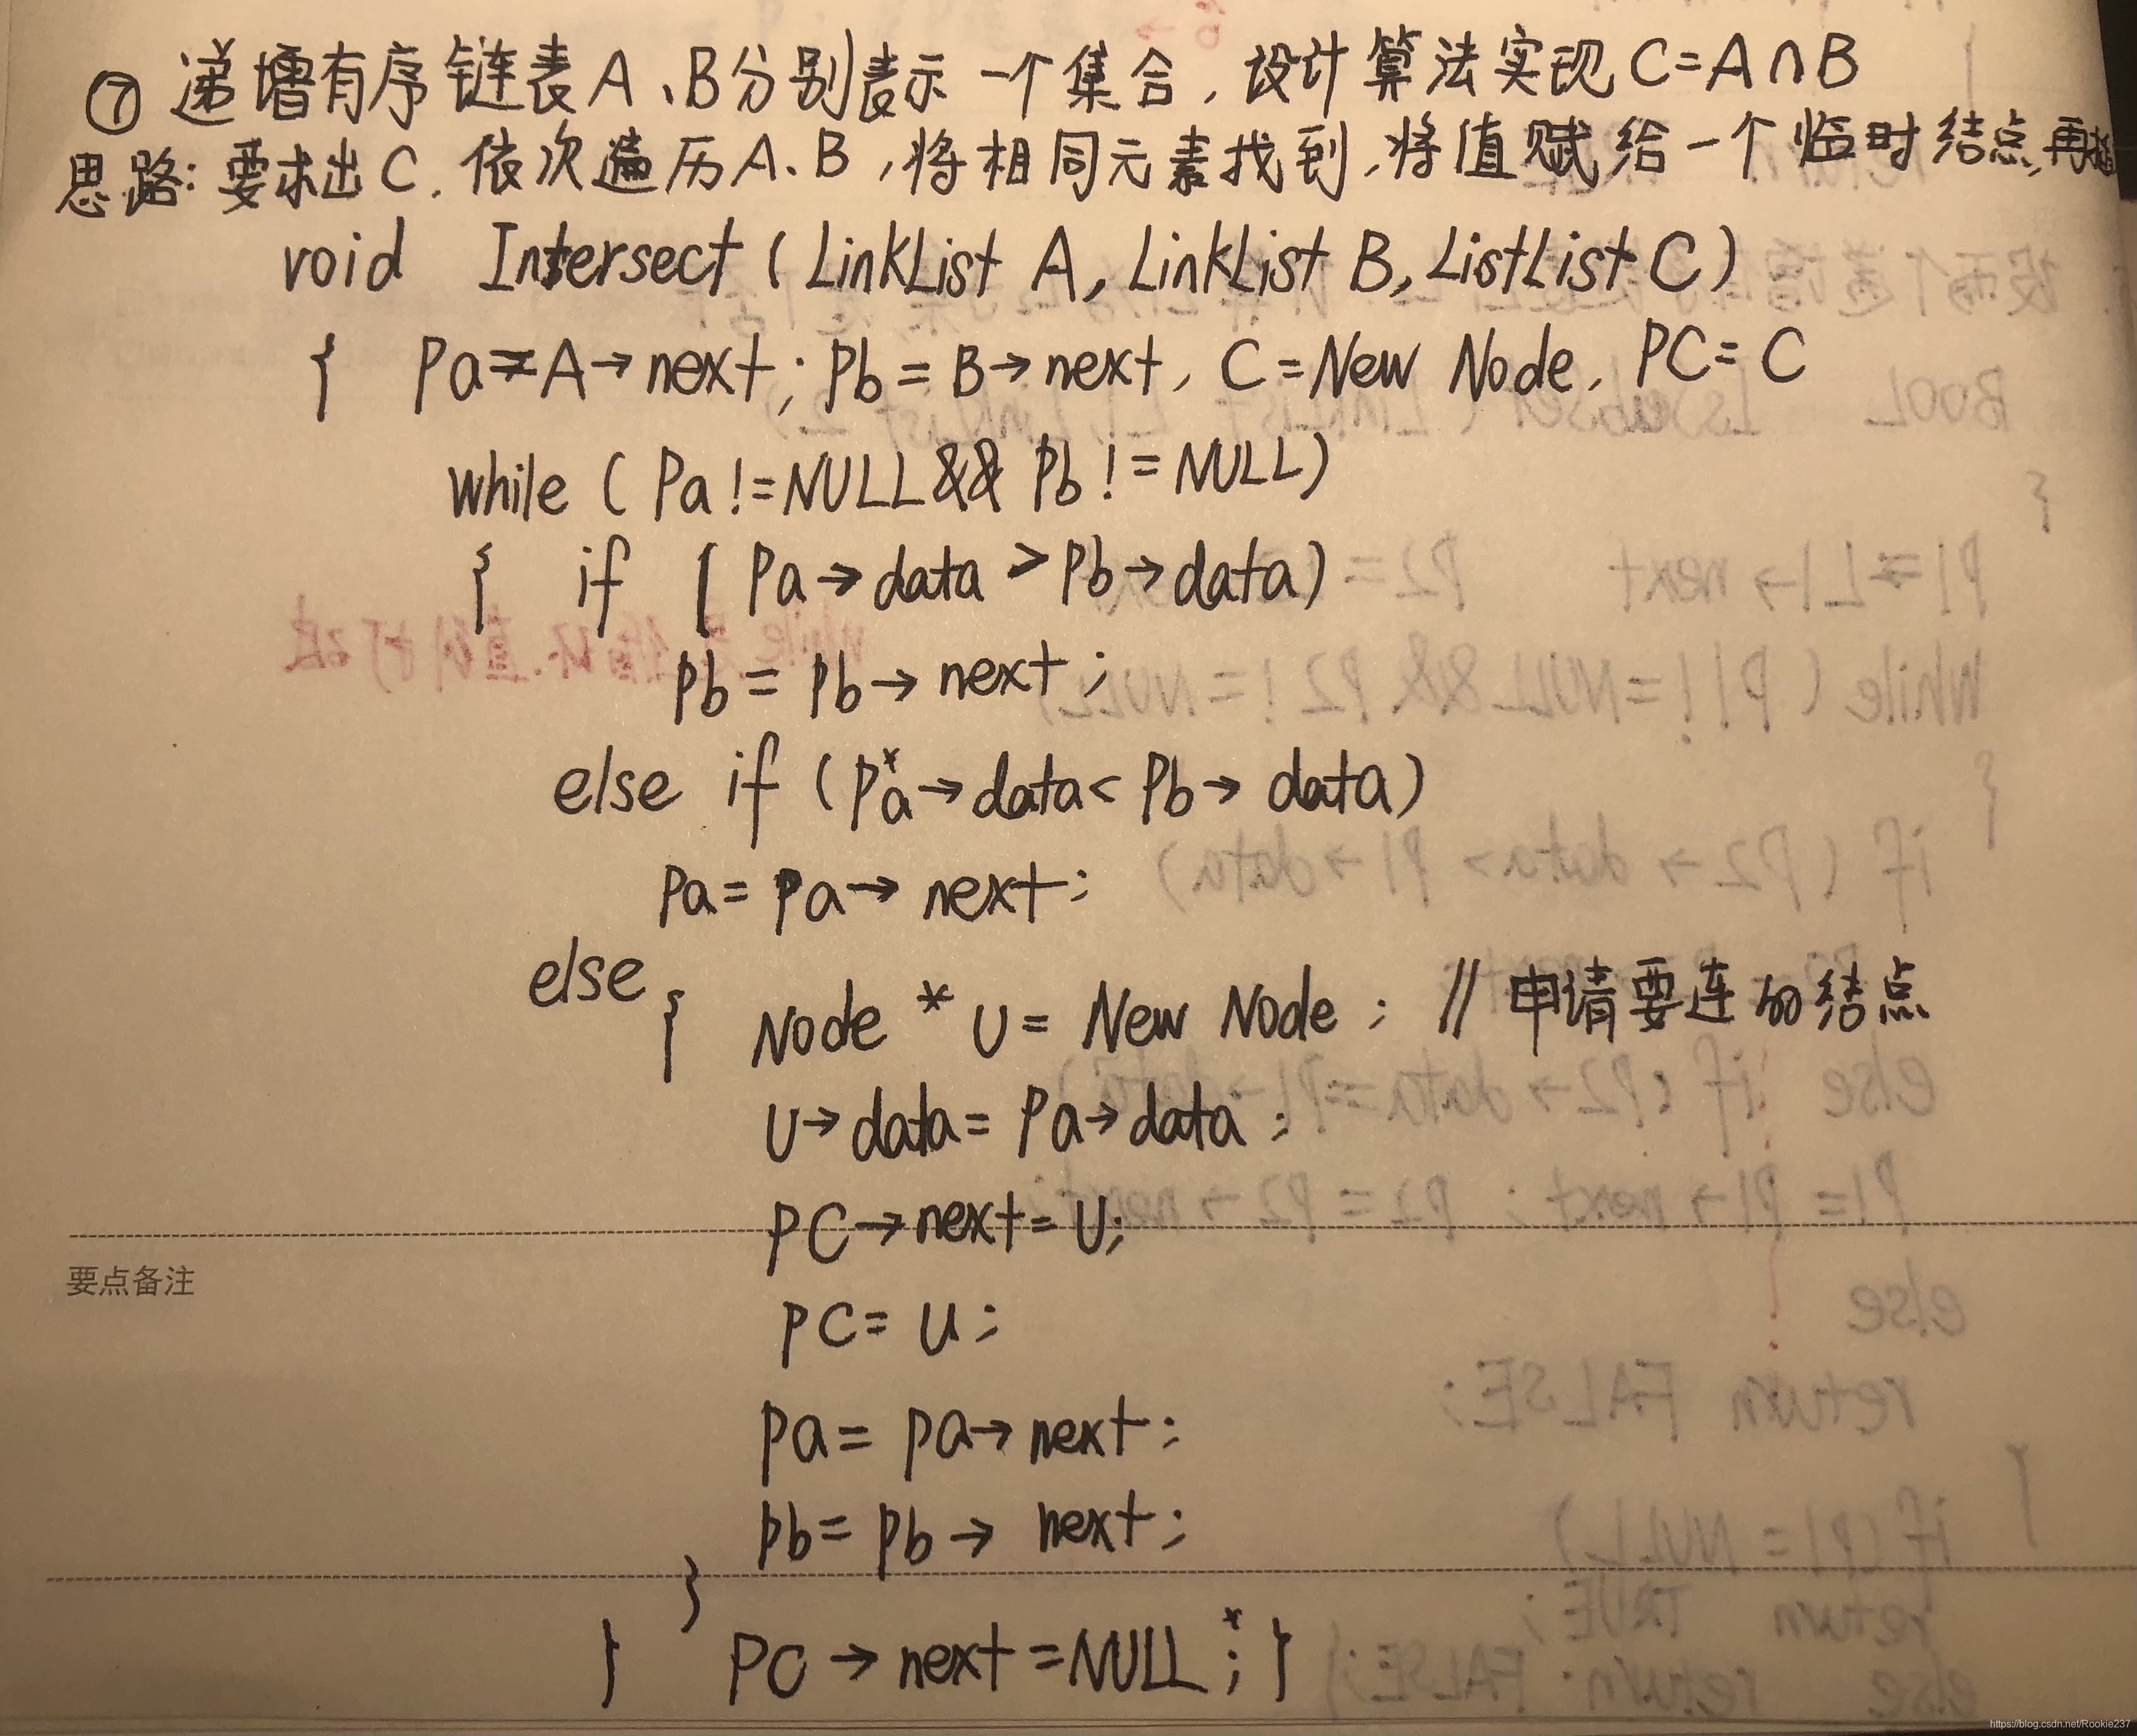 ⑦ 递增有序链表A、B分别表示一个集合,设计算法实现C=A∩B
思路:要求出C.依次遍历A、B,将相同元素找到,将值赋给一个临时结点,再
void Intersect (LinkList A, LinkList B, ListList C)
{ Pa=A→next; Pb=B→next, C=New Node, PC=C
while (Pa!=NULL&& Pb!=NULL)
{ if (Pa→data>Pb→data)
pb=pb→next;
else if (Pa→data<Pb→data)
Pa=Pa→next;
else{ Node *U=New Node; //申请要连的结点
U→data=Pa→data;
PC→next=U;
PC=U;
Pa=Pa→next;
Pb=Pb→next;
}
} PC→next=NULL;}
要点备注
https://blog.csdn.net/Rookie237